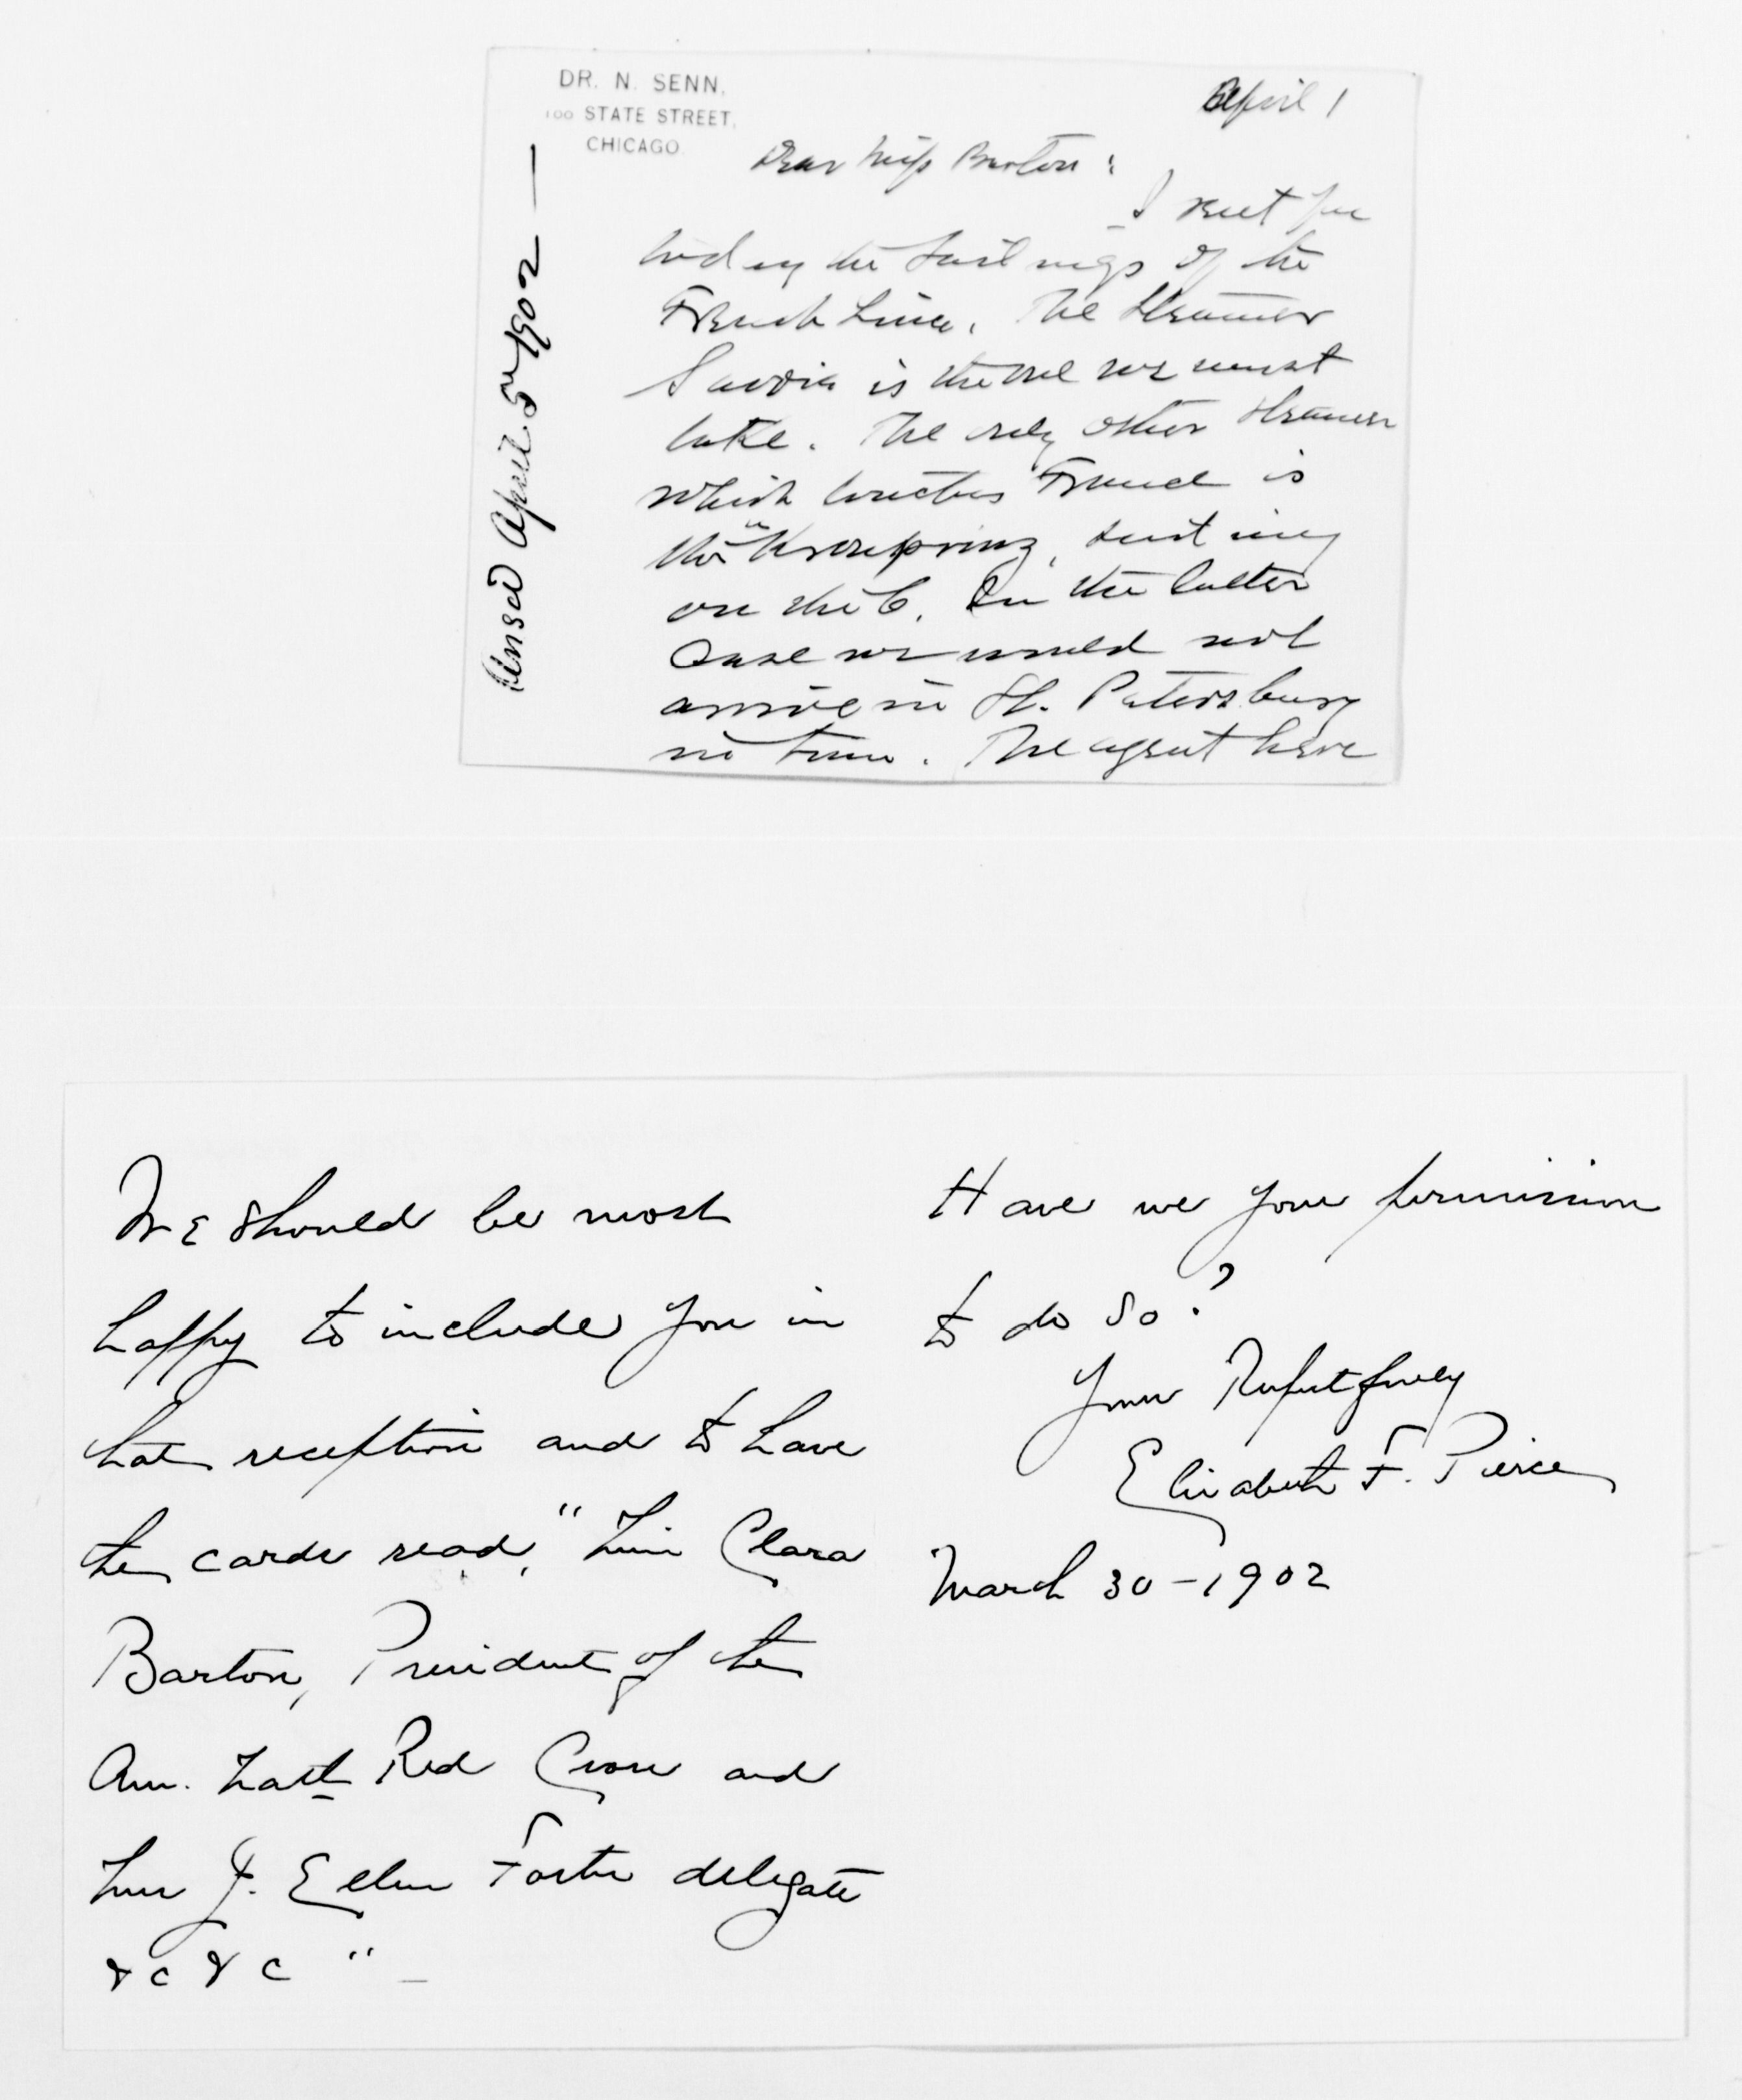 DR. N. SENN,
100 STATE STREET,
CHICAGO.
April 1
Dear Miss Barton:
I sent you
today the sailings of the
French Line. The Steamer
Savoia is the one we must
take. The only other steamer
which touches France is
the "Kronprinz, sailing
on the 6. In the latter
case we would not
arrive in St. Petersburg
in time. The agent here
Ansed April 5" 1902 —
We should be most
happy to include you in
that reception and to have
the cards read, "Miss Clara
Barton, President of the
Am. Natl Red Cross and
Mrs J. Ellen Foster delegate
&c &c " —
Have we your permission
to do so?
Yours Respectfully
Elizabeth F. Pierce
March 30 - 1902